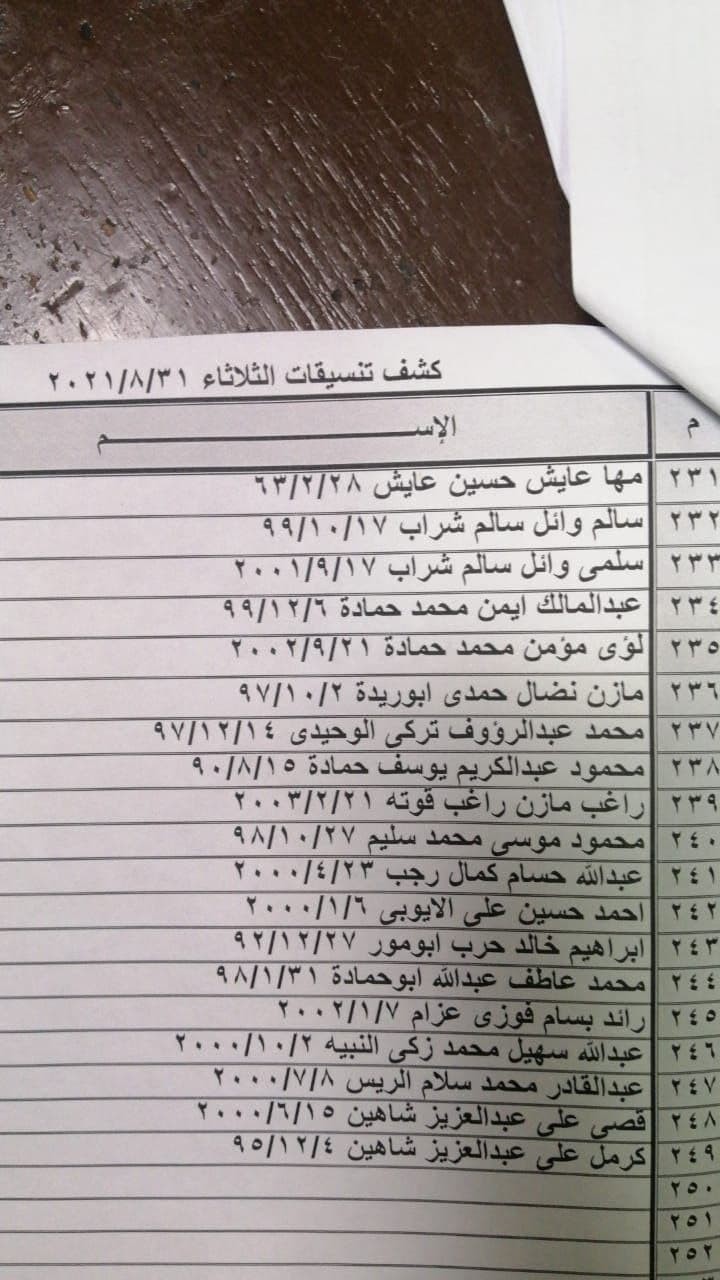 كشف تنسيقات الثلاثاء ٢٠٢١/٨/٣١
م الإســـــــــــــــــــــــم
٢٣١ مها عايش حسين عايش ٦٣/٢/٢٨
٢٣٢ سالم وائل سالم شراب ٩٩/١٠/١٧
٢٣٣ سلمى وائل سالم شراب ٢٠٠١/٩/١٧
٢٣٤ عبدالمالك ايمن محمد حمادة ٩٩/١٢/٦
٢٣٥ لؤى مؤمن محمد حمادة ٢٠٠٢/٩/٢١
٢٣٦ مازن نضال حمدى ابوريدة ٩٧/١٠/٢
٢٣٧ محمد عبدالرؤوف تركى الوحيدى ٩٧/١٢/١٤
٢٣٨ محمود عبدالكريم يوسف حمادة ٩٠/٨/١٥
٢٣٩ راغب مازن راغب قوته ٢٠٠٣/٢/٢١
٢٤٠ محمود موسى محمد سليم ٩٨/١٠/٢٧
٢٤١ عبدالله حسام كمال رجب ٢٠٠٠/٤/٢٣
٢٤٢ احمد حسين على الايوبى ٢٠٠٠/١/٦
٢٤٣ ابراهيم خالد حرب ابومور ٩٢/١٢/٢٧
٢٤٤ محمد عاطف عبدالله ابوحمادة ٩٨/١/٣١
٢٤٥ رائد بسام فوزى عزام ٢٠٠٢/١/٧
٢٤٦ عبدالله سهيل محمد زكى النبيه ٢٠٠٠/١٠/٢
٢٤٧ عبدالقادر محمد سلام الريس ٢٠٠٠/٧/٨
٢٤٨ قصى على عبدالعزيز شاهين ٢٠٠٠/٦/١٥
٢٤٩ كرمل على عبدالعزيز شاهين ٩٥/١٢/٤
٢٥٠
٢٥١
٢٥٢